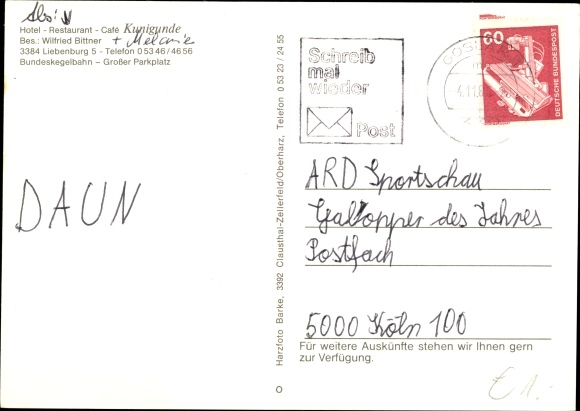 Abs:
Hotel - Restaurant - Café Kunigunde
Bes.: Wilfried Bittner + Melanie
3384 Liebenburg 5 - Telefon 0 53 46 / 46 56
Bundeskegelbahn – Großer Parkplatz
DAUN
Harzfoto Barke, 3392 Clausthal-Zellerfeld/Oberharz, Telefon 0 53 23 / 24 55
Schreib
mal
wieder
Post
GOS
4.11.8
60
DEUTSCHE BUNDESPOST
ARD Sportschau
Gallopper des Jahres
Postfach
5000 Köln 100
Für weitere Auskünfte stehen wir Ihnen gern
zur Verfügung.
€ 1.-